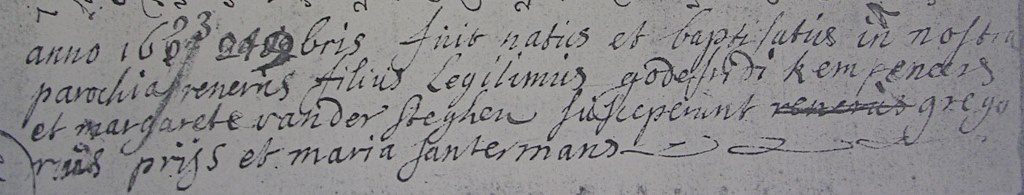 anno 1623 bris fuit natus et baptisatus in nostra
parochia renerus filius legitimus godefridi kempeneers
et margarete vander steghen susceperunt renerus grego
rius priss et maria santermans